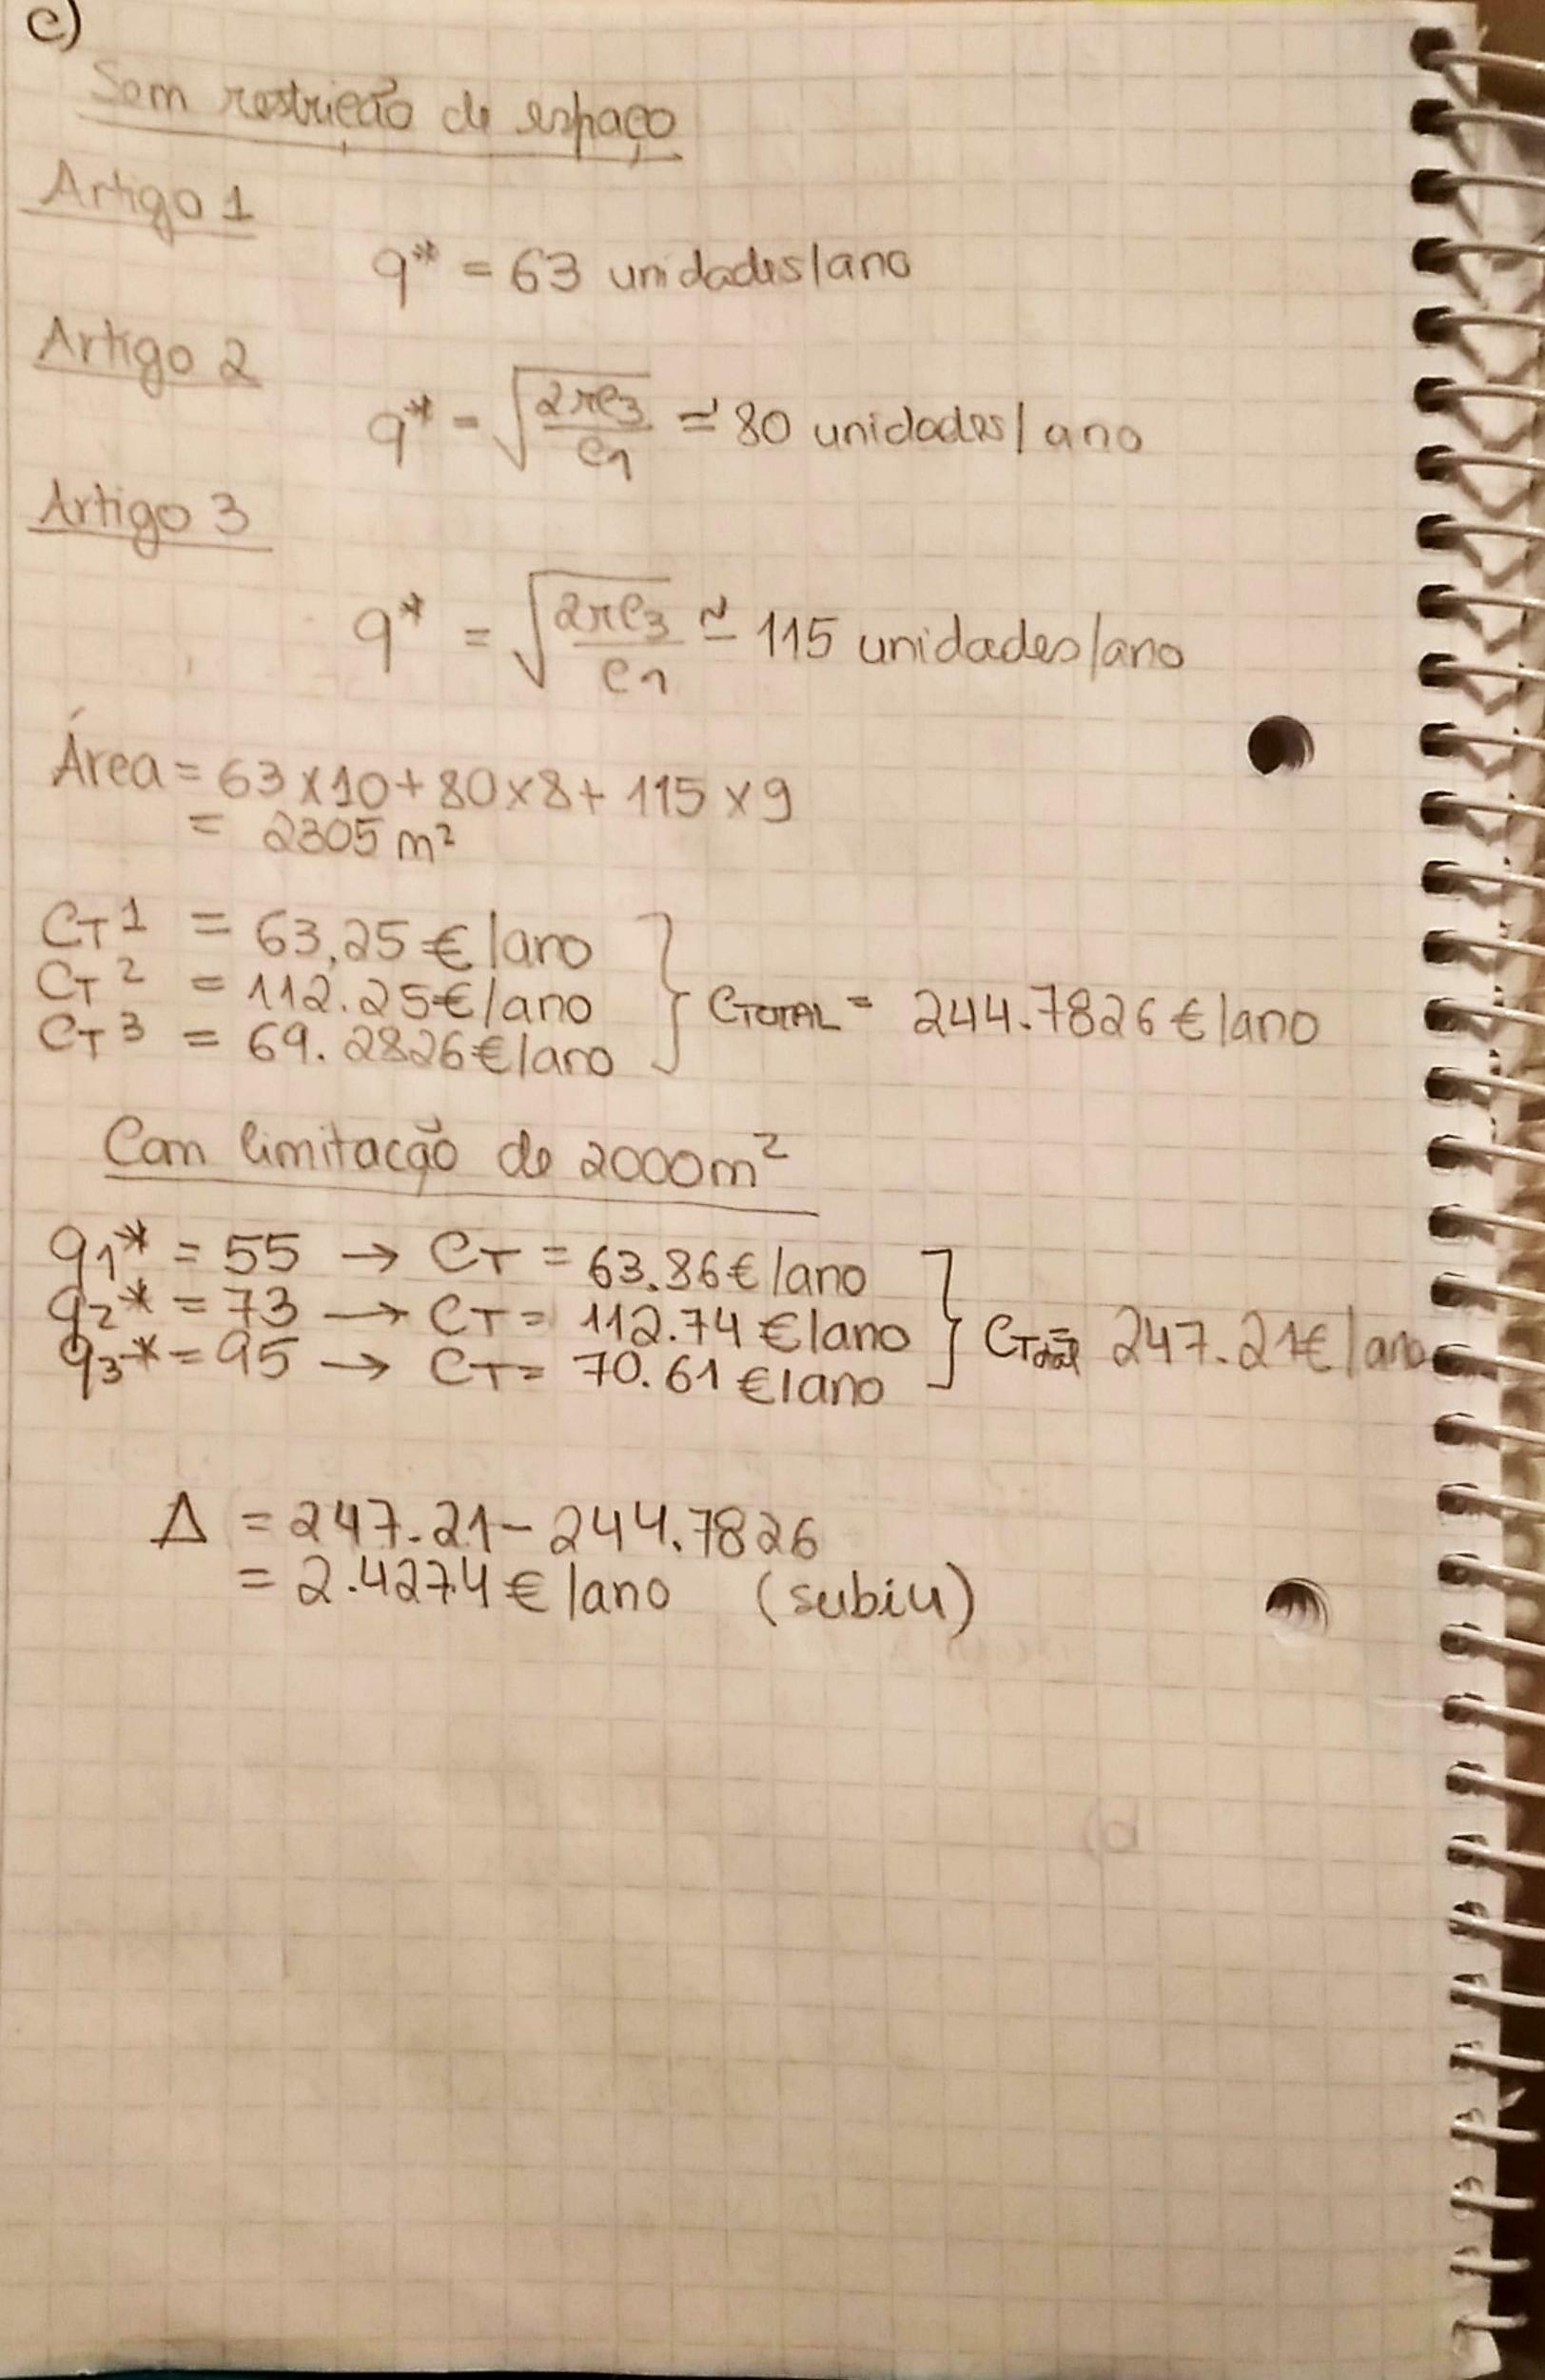 c)
Sem restrição de espaço
Artigo 1
q* = 63 unidades/ano
Artigo 2
q* = √(2rc₃/c₁) ≃ 80 unidades/ano
Artigo 3
q* = √(2rc₃/c₁) ≃ 115 unidades/ano
Área = 63 x 10 + 80 x 8 + 115 x 9
= 2305 m²
CT 1 = 63,25 €/ano
CT 2 = 112.25€/ano
CT 3 = 69.2826€/ano
} CTOTAL = 244.7826 €/ano
Com limitação de 2000m²
q₁* = 55 → CT = 63.86€/ano
q₂* = 73 → CT = 112.74 €/ano
q₃* = 95 → CT = 70.61 €/ano
} CTotal = 247.21€/ano
Δ = 247.21 - 244.7826
= 2.4274 €/ano (subiu)